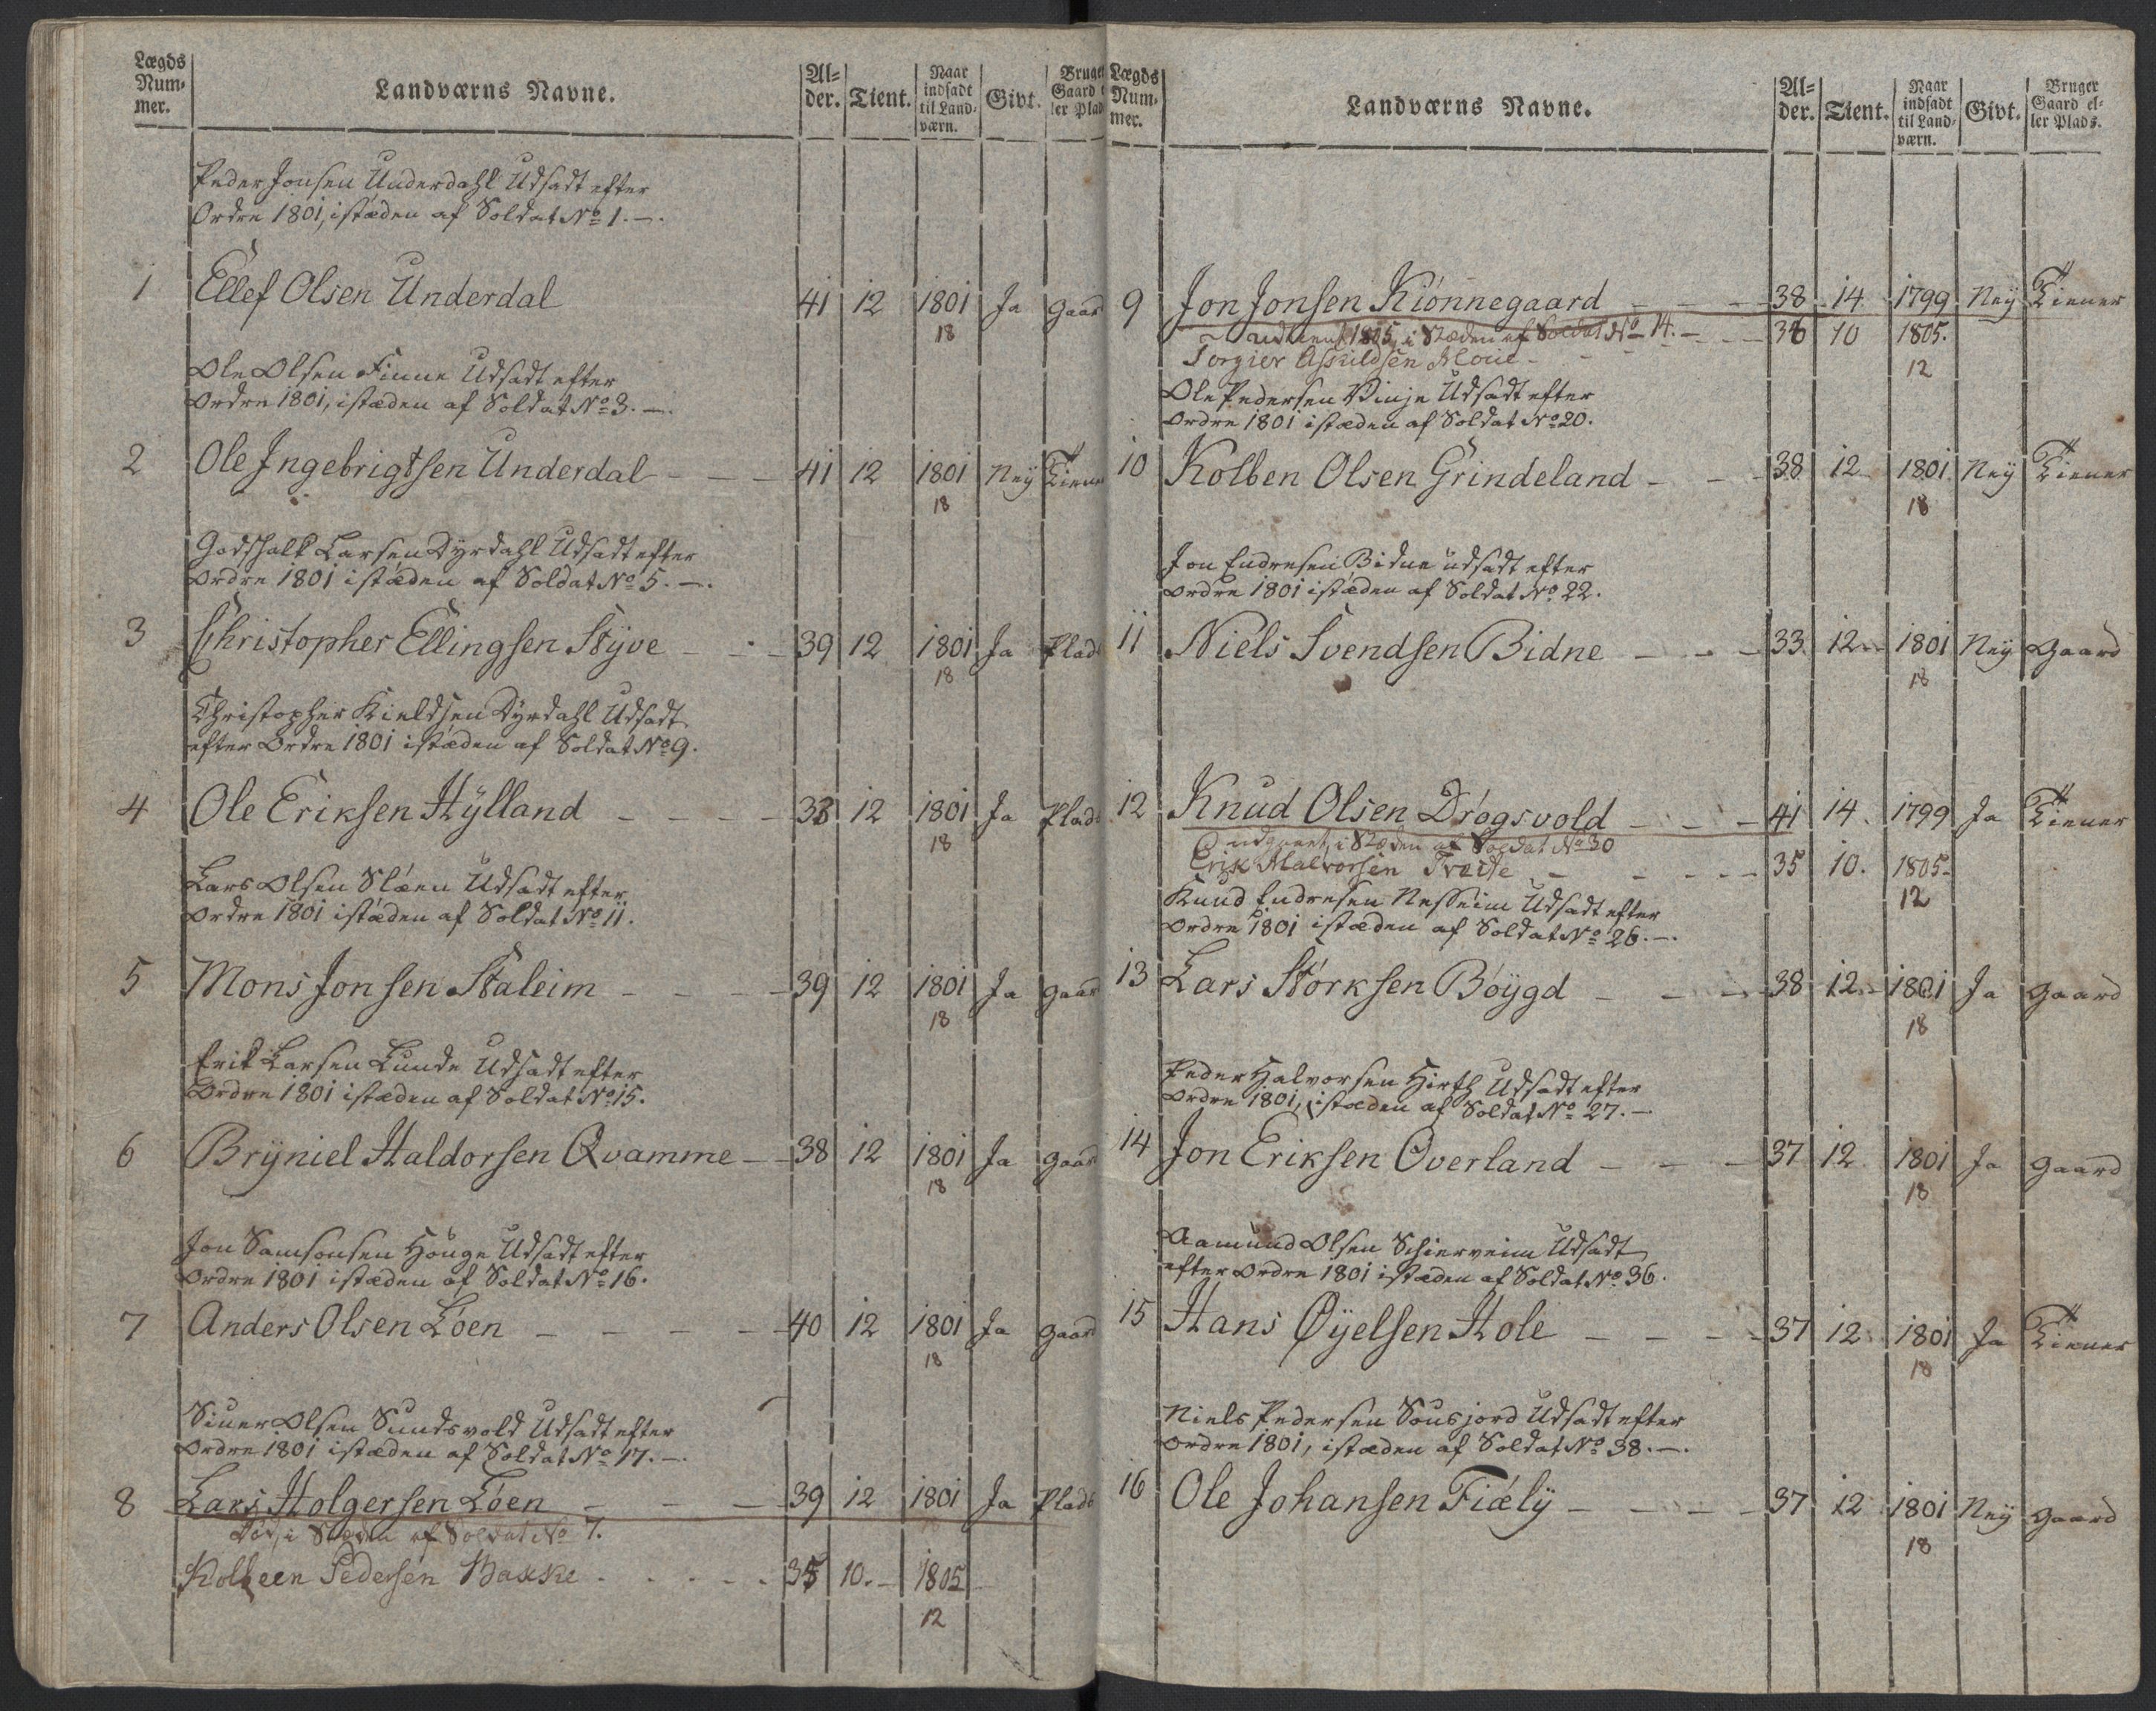 Lægds Num- mer. Landværns Navne. Al- der. Tient. Naar indsadt til Land- værn. Givt. Bruger Gaard ler Plad
Peder Jonsen Underdahl Udsadt efter
Ordre 1801, istæden af Soldat No 1. –.
1 Ellef Olsen Underdal 41 12 1801 Ja Gaar
18
Ole Olsen Finne Udsadt efter
Ordre 1801, istæden af Soldat No 3. –.
2 Ole Ingebrigtsen Underdal – – – 41 12 1801 Neÿ Tiene
18
Godshalk Larsen Dyrdahl Udsadt efter
Ordre 1801 istæden af Soldat No 5. –.
3 Christopher Ellingsen Stÿve – – – 39 12 1801 Ja Plads
18
Christopher Kieldsen Dyrdahl Udsadt
efter Ordre 1801 istæden af Soldat No 9.
4 Ole Eriksen Hÿlland – – – – 33 12 1801 Ja Plads
18
Lars Olsen Slæen Udsadt efter
Ordre 1801 istæden af Soldat No 11.
5 Mons Jonsen Staleim – – – – 39 12 1801 Ja Gaar
18
Erik Larsen Lunde Udsadt efter
Ordre 1801 istæden af Soldat No 15.
6 Brÿniel Haldorsen Qvamme – – 38 12 1801 Ja Gaar
18
Jon Samsonsen Houge Udsadt efter
Ordre 1801 istæden af Soldat No 16.
7 Anders Olsen Löen – – – – – 40 12 1801 Ja Gaard
18
Siver Olsen Sundsvold Udsadt efter
Ordre 1801 istæden af Soldat No 17. –.
8 Lars Holgersen Löen – – – 39 12 1801 Ja Plads
Död, i Stæden af Soldat No 7.
Kolbeen Pedersen . . . . . 35 10. – 1805
12
Lægds Num- mer. Landværns Navne. Al- der. Tient. Naar indsadt til Land- værn. Givt. Bruger Gaard el- ler Plads.
9 Jon Jonsen Kiönnegaard – – – 38 14 1799 Neÿ Tiener
1805, i Stæden af Soldat No 14. – 36 10 1805.
Torgier Askildsen – 12
Ole Pedersen Vinje Udsadt efter
Ordre 1801 istæden af Soldat No 20.
10 Kolben Olsen Grindeland – – – 38 12 1801 Neÿ Tiener
18
Jon Endresen Bidne udsadt efter
Ordre 1801 istæden af Soldat No 22.
11 Niels Svendsen Bidne – – – 33 12 1801 Neÿ Gaard
18
12 Knud Olsen Drögsvold – – – 41 14. 1799 Ja Tiener
udgaaet, i Stæden af Soldat No 30
Erik Halvorsen Træite – – – – 35 10. 1805
Knud Endresen Nesseim Udsadt efter 12
Ordre 1801 istæden af Soldat No 26. –.
13 Lars Störksen Böÿgd – – – 38 12 1801 Ja Gaard
18
Peder Halvorsen Hirth Udsadt efter
Ordre 1801, istæden af Soldat No 27. –.
14 Jon Eriksen Overland – – – 37 12 1801 Ja Gaard
18
Aamund Olsen Schierveim Udsadt
efter Ordre 1801 istæden af Soldat No 36.
15 Hans Øÿelsen Hole – – – – 37 12 1801 Ja Tiener
18
Niels Pedersen Sousjord Udsadt efter
Ordre 1801, istæden af Soldat No 38. –.
16 Ole Johansen Fiælÿ – – – – 37 12 1801 Neÿ Gaard
18